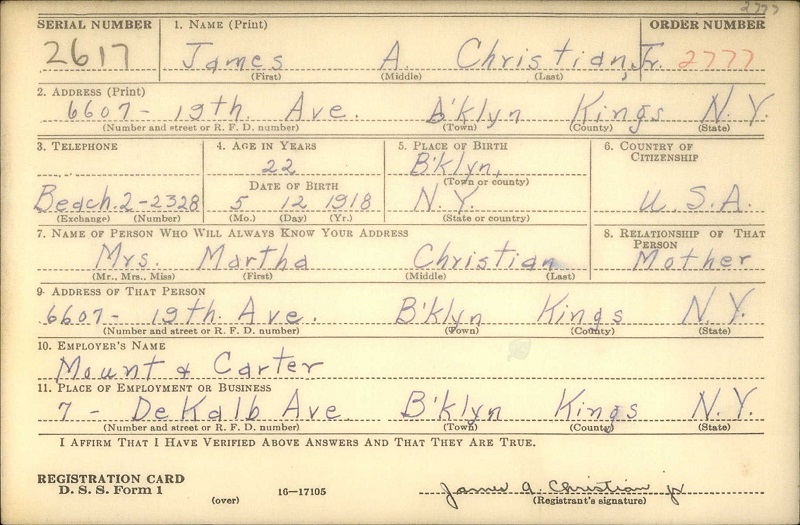 2777
SERIAL NUMBER 1. NAME (Print) ORDER NUMBER
2617 James A. Christian, Jr. 2777
(First) (Middle) (Last)
2. ADDRESS (Print)
6607- 19th. Ave. B'klyn Kings N.Y.
(Number and street or R. F. D. number) (Town) (County) (State)
3. TELEPHONE 4. AGE IN YEARS 5. PLACE OF BIRTH 6. COUNTRY OF CITIZENSHIP
22 B'klyn,
DATE OF BIRTH (Town or county)
Beach.2-2328 5 12 1918 N.Y. U.S.A.
(Exchange) (Number) (Mo.) (Day) (Yr.) (State or country)
7. NAME OF PERSON WHO WILL ALWAYS KNOW YOUR ADDRESS 8. RELATIONSHIP OF THAT PERSON
Mrs. Martha Christian Mother
(Mr., Mrs., Miss) (First) (Middle) (Last)
9. ADDRESS OF THAT PERSON
6607- 19th. Ave. B'klyn Kings N.Y.
(Number and street or R. F. D. number) (Town) (County) (State)
10. EMPLOYER'S NAME
Mount & Carter
11. PLACE OF EMPLOYMENT OR BUSINESS
7 - DeKalb Ave. B'klyn Kings N.Y.
(Number and street or R. F. D. number) (Town) (County) (State)
I AFFIRM THAT I HAVE VERIFIED ABOVE ANSWERS AND THAT THEY ARE TRUE.
REGISTRATION CARD
D. S. S. Form 1 (over) 16-17105 James A. Christian Jr
(Registrant's signature)